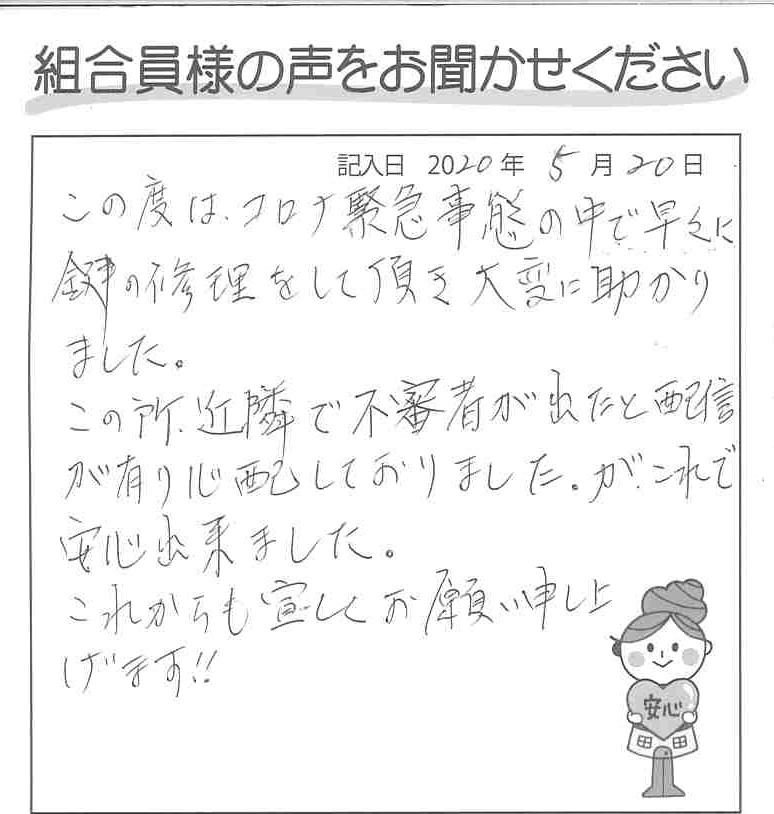 組合員様の声をお聞かせください
記入日 2020年 5月20日
この度は、コロナ緊急事態の中で早々に
鍵の修理をして頂き大変に助かり
ました。
この所、近隣で不審者が出たと配信
が有り心配しておりました。が、これで
安心出来ました。
これからも宜しくお願い申し上
げます!!
安心